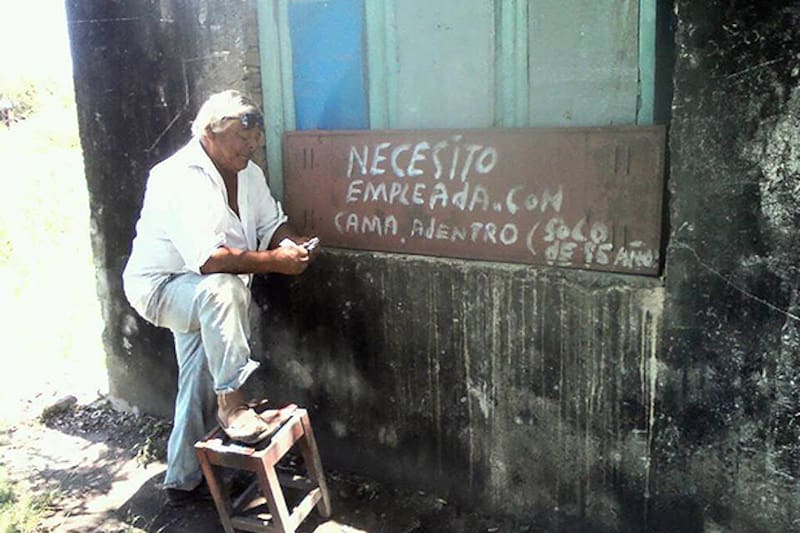 NECESITO
EMPLEADA.CON
CAMA.ADENTRO (SOLO
DE 15 AÑOS